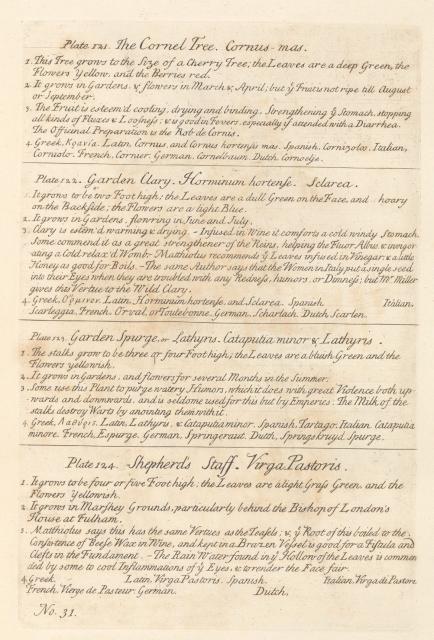 Plate 121. The Cornel Tree. Cornus-mas.
1. This Tree grows to the Size of a Cherry Tree; the Leaves are a deep Green, the
Flowers Yellow, and the Berries red.
2. It grows in Gardens, & flowers in March & April; but ye Fruit is not ripe till August
or September.
3. The Fruit is esteem'd cooling, drying and binding. Strengthening ye Stomach, stopping
all kinds of Fluxes & Loosness; & is good in Fevers, especially if attended with a Diarrhea.
The Officinal Preparation is the Rob de Cornus.
4. Greek, Κρανία. Latin, Cornus, and Cornus hortensis mas. Spanish, Cornizolos, Italian,
Corniolo. French, Cornier. German, Cornelbaum. Dutch, Cornoelge.
Plate 122. Garden Clary. Horminum hortense. Sclarea.
1. It grows to be two Foot high; the Leaves are a dull Green on the Face, and hoary
on the Backside; the Flowers are a light Blue.
2. It grows in Gardens, flowring in June and July.
3. Clary is esteem'd warming & drying. - Infused in Wine it comforts a cold windy Stomach.
Some commend it as a great strengthener of the Reins, helping the Fluor Albus & invigor
ating a Cold relax'd Womb. Matthiolus recommends ye Leaves infused in Vinegar & a little
Honey as good for Boils. - The same Author says that the Women in Italy put a single seed
into their Eyes when they are troubled with any Redness, humors, or Dimness; but Mr. Miller
gives this Vertue to the Wild Clary.
4. Greek, Ὅρμινον. Latin, Horminum hortense, and Sclarea. Spanish. Italian,
Scarleggia. French, Orval, or Toutebonne. German, Scharlach. Dutch, Scarlen.
Plate 123. Garden Spurge, or Lathyris. Cataputia minor & Lathyris.
1. The stalks grow to be three or four Foot high; the Leaves are a bluish Green and the
Flowers yellowish.
2. It grows in Gardens, and flowers for several Months in the Summer.
3. Some use this Plant to purge watery Humors, which it does with great Violence both up
wards and downwards, and is seldome used for this but by Emperics. The Milk of the
stalks destroy Warts by anointing them with it.
4. Greek, Λαθυρις. Latin, Lathyris, & Cataputia minor. Spanish, Tartago. Italian, Cataputia
minore. French, Espurge. German, Springeraut. Dutch, Springskruyd Spurge.
Plate 124. Shepherds Staff. Virga Pastoris.
1. It grows to be four or five Foot high; the Leaves are a light Grass Green, and the
Flowers Yellowish.
2. It grows in Marshey Grounds, particularly behind the Bishop of London's
House at Fulham.
3. Matthiolus says this has the same Vertues as the Teasels; & ye Root of this boiled to the
Consistence of Beese Wax in Wine, and kept in a Brazen Vessel is good for a Fistula and
Clefts in the Fundament. - The Rain Water found in ye Hollow of the Leaves is commen
ded by some to cool Inflammations of ye Eyes, & to render the Face fair.
4. Greek. Latin, Virga Pastoris. Spanish. Italian, Virga de Pastori
French, Vierge de Pasteur. German. Dutch,
No. 31.